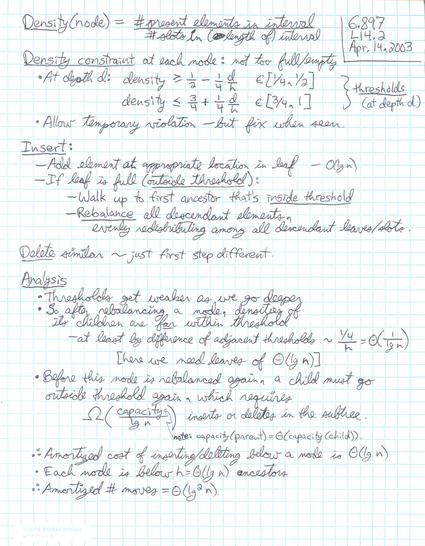 Density(node) = # present elements in interval / # slots in (length of) interval
6.897
L14.2
Apr. 14, 2003
Density constraint at each node: not too full/empty
• At depth d: density ≥ 1/2 - 1/4 d/h ∈ [1/4, 1/2]
density ≤ 3/4 + 1/4 d/h ∈ [3/4, 1]
} thresholds
(at depth d)
• Allow temporary violation — but fix when seen.
Insert:
— Add element at appropriate location in leaf — O(lg n)
— If leaf is full (outside threshold):
— Walk up to first ancestor that's inside threshold
— Rebalance all descendant elements,
evenly redistributing among all descendant leaves/slots.
Delete similar ~ just first step different.
Analysis
• Thresholds get weaker as we go deeper
• So after rebalancing a node, densities of
its children are far within threshold
— at least by difference of adjacent thresholds ~ 1/4 / h = Θ(1/lg n)
[here we need leaves of Θ(lg n)]
• Before this node is rebalanced again, a child must go
outside threshold again, which requires
Ω(capacity / lg n) inserts or deletes in the subtree.
note: capacity(parent) = Θ(capacity(child)).
∴ Amortized cost of inserting/deleting below a node is Θ(lg n)
• Each node is below h = Θ(lg n) ancestors
∴ Amortized # moves = Θ(lg² n)